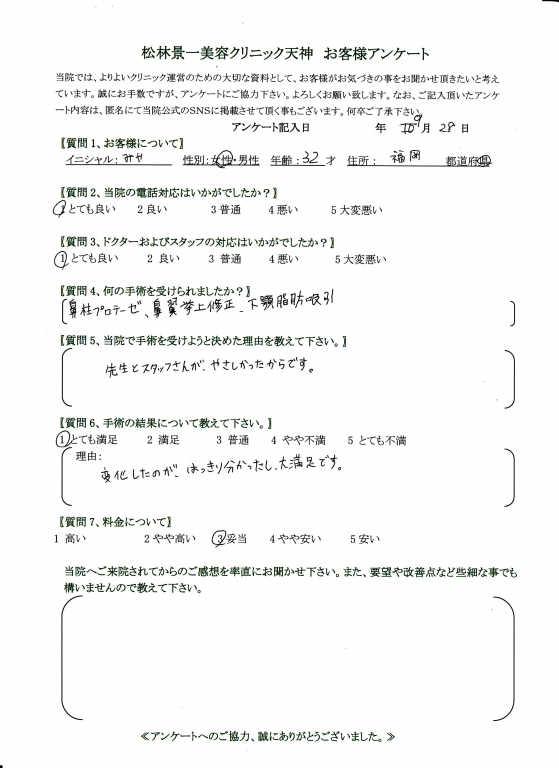 松林景一美容クリニック天神　お客様アンケート
当院では、よりよいクリニック運営のための大切な資料として、お客様がお気づきの事をお聞かせ頂きたいと考え
ています。誠にお手数ですが、アンケートにご協力下さい。よろしくお願い致します。なお、ご記入頂いたアンケ
ート内容は、匿名にて当院公式のSNSに掲載させて頂く事もございます。何卒ご了承下さい。
アンケート記入日　　年　9月　28日
〖質問1、お客様について〗
イニシャル：みや　性別：女性・男性　年齢：32才　住所：福岡　都道府県
〖質問2、当院の電話対応はいかがでしたか？〗
1 とても良い　2 良い　3 普通　4 悪い　5 大変悪い
〖質問3、ドクターおよびスタッフの対応はいかがでしたか？〗
1 とても良い　2 良い　3 普通　4 悪い　5 大変悪い
〖質問4、何の手術を受けられましたか？〗
鼻柱プロテーゼ、鼻翼挙上修正、下顎脂肪吸引
〖質問5、当院で手術を受けようと決めた理由を教えて下さい。〗
先生とスタッフさんが、やさしかったからです。
〖質問6、手術の結果について教えて下さい。〗
1 とても満足　2 満足　3 普通　4 やや不満　5 とても不満
理由：
変化したのが、はっきり分かったし、大満足です。
〖質問7、料金について〗
1 高い　2 やや高い　3 妥当　4 やや安い　5 安い
当院へご来院されてからのご感想を率直にお聞かせ下さい。また、要望や改善点など些細な事でも
構いませんので教えて下さい。
≪アンケートへのご協力、誠にありがとうございました。≫